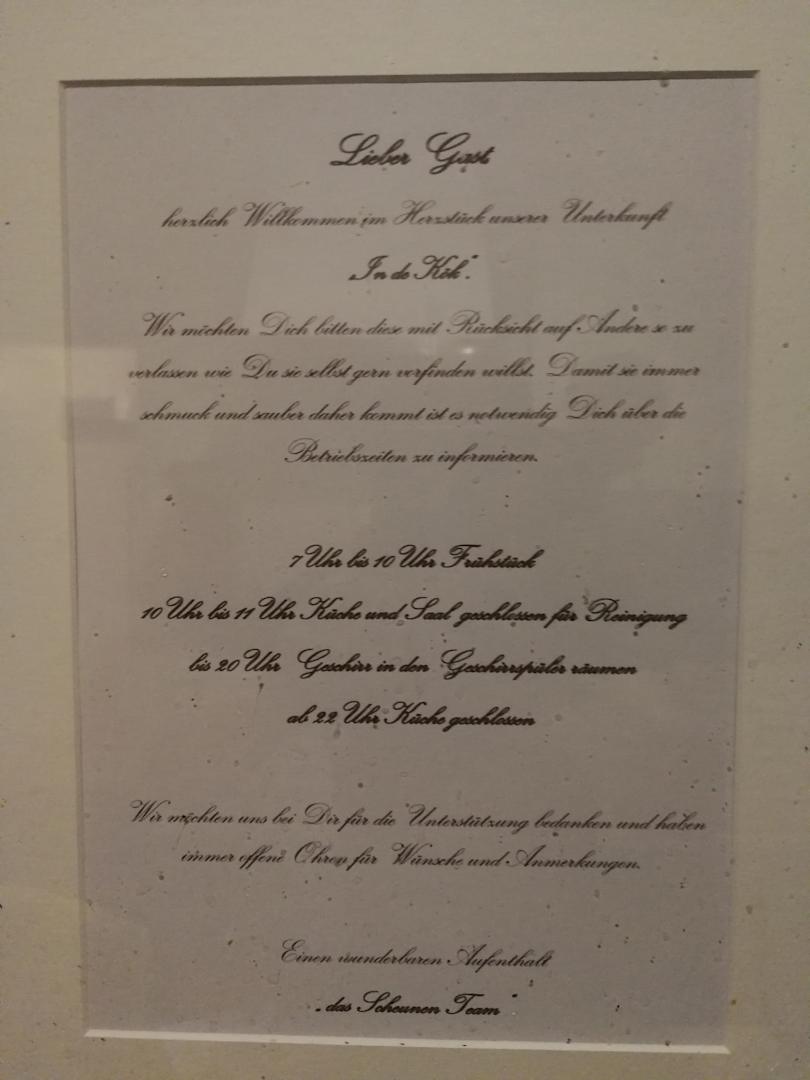 Lieber Gast
herzlich Willkommen im Herzstück unserer Unterkunft
„In de Kök".
Wir möchten Dich bitten diese mit Rücksicht auf Andere so zu
verlassen wie Du sie selbst gern vorfinden willst. Damit sie immer
schmuck und sauber daher kommt ist es notwendig Dich über die
Betriebszeiten zu informieren.
7 Uhr bis 10 Uhr Frühstück
10 Uhr bis 11 Uhr Küche und Saal geschlossen für Reinigung
bis 20 Uhr Geschirr in den Geschirrspüler räumen
ab 22 Uhr Küche geschlossen
Wir möchten uns bei Dir für die Unterstützung bedanken und haben
immer offene Ohren für Wünsche und Anmerkungen.
Einen wunderbaren Aufenthalt
„das Scheunen Team"